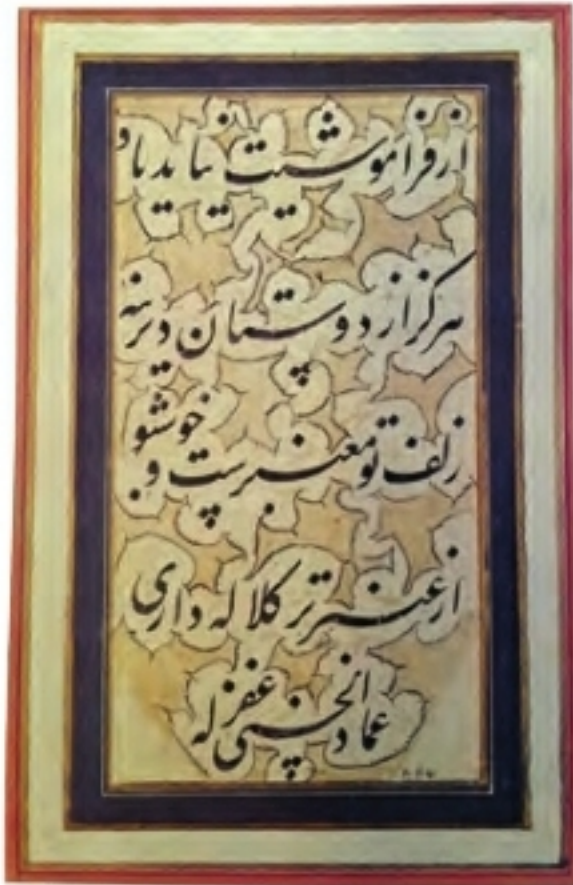 از فراموشیت نیاید یاد
هرگز از دوستان دیرینه
زلف تو معنبر است و خوشبو
از عنبر تر کلاله داری
عماد الحسنی غفر له